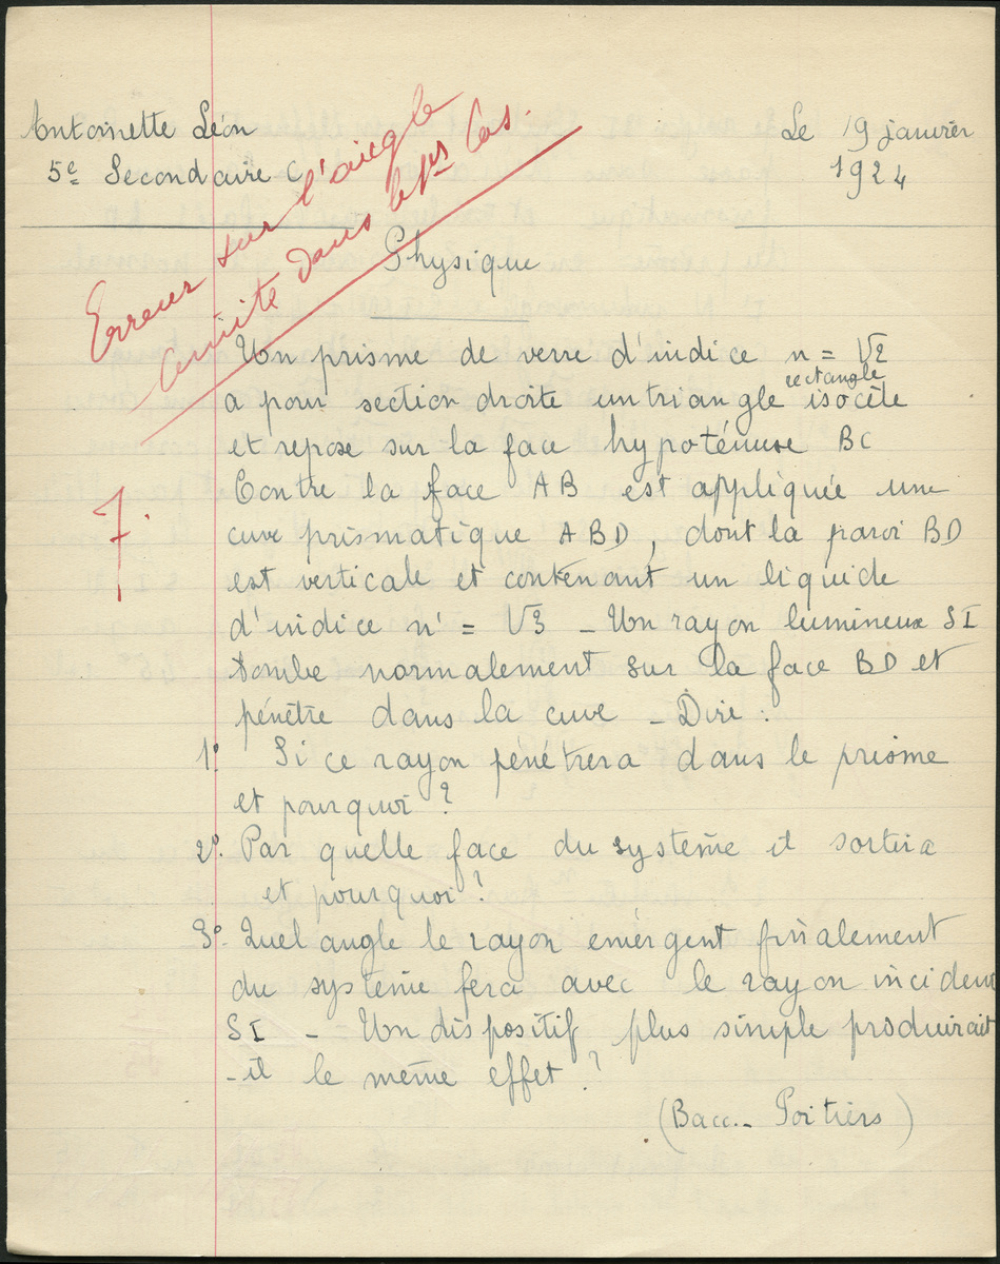 Antoinette Léon
Le 19 janvier
5e Secondaire C
1924
Erreur sur l'angle
limite dans le 1er Cas.
Physique
Un prisme de verre d'indice n = √2
rectangle
a pour section droite un triangle isocèle
et repose sur la face hypoténuse BC
7.
Contre la face AB est appliquée une
cuve prismatique ABD, dont la paroi BD
est verticale et contenant un liquide
d'indice n' = √3 _ Un rayon lumineux SI
tombe normalement sur la face BD et
pénètre dans la cuve _ Dire :
1o. Si ce rayon pénétrera dans le prisme
et pourquoi ?
2o. Par quelle face du système il sortira
et pourquoi ?
3o. Quel angle le rayon émergent finalement
du système fera avec le rayon incident
SI _ Un dispositif plus simple produirait
-il le même effet ?
(Bacc.. Poitiers)